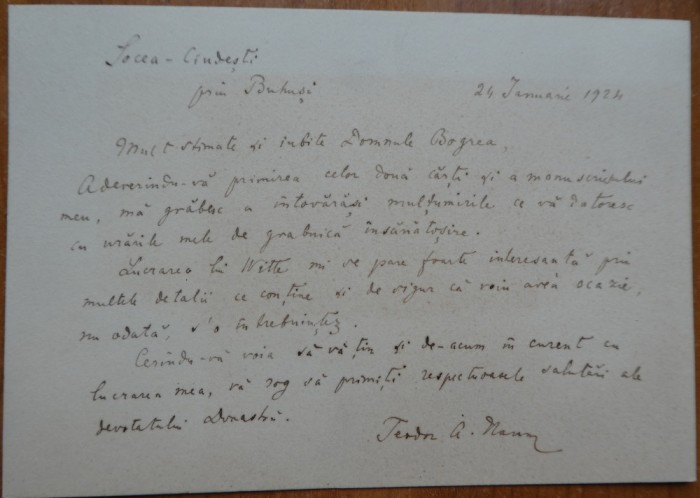 Socea - Ciudești
prin Buhuși
24 Ianuarie 1924
Mult stimate și iubite Domnule Bogrea,
Adeverindu-vă primirea celor două cărți și a manuscriptului
meu, mă grăbesc a întovărăși mulțumirile ce vă datoresc
cu urările mele de grabnică însănătoșire.
Lucrarea lui Witte mi se pare foarte interesantă prin
multele detalii ce conține și de sigur că voiu avea ocazie,
nu odată, s'o întrebuințez.
Cerându-vă voia să vă țin și de-acum în curent cu
lucrarea mea, vă rog să primiți respectuoasele salutări ale
devotatului Dvoastră.
Teodor A. Naum